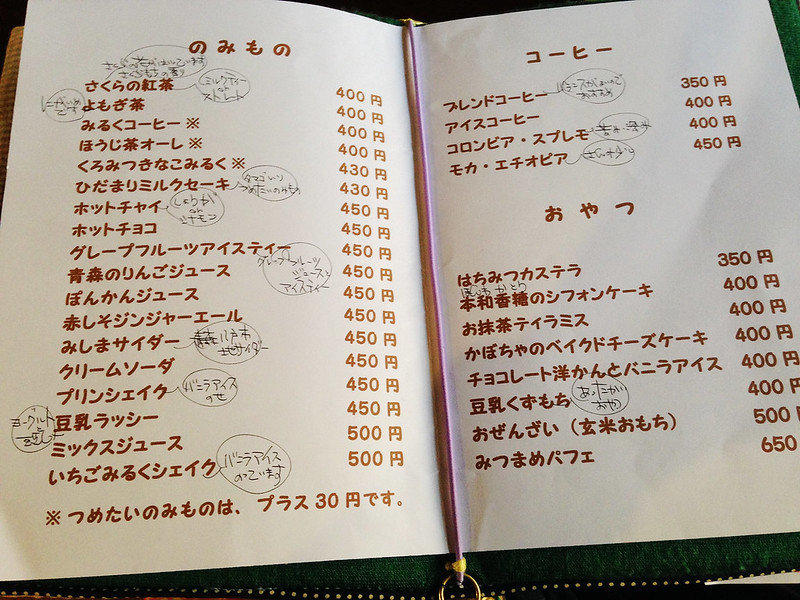 のみもの
さくらの紅茶 400円
ミルクティー
or
ストレート
よもぎ茶 400円
にがいめ
です
みるくコーヒー ※ 400円
ほうじ茶オーレ ※ 400円
くろみつきなこみるく ※ 430円
ひだまりミルクセーキ 430円
タマゴ入り
つめたいのみもの
ホットチャイ 450円
しょうが
or
シナモン
ホットチョコ 450円
グレープフルーツアイスティー 450円
グレープフルーツ
ジュースと
アイスティー
青森のりんごジュース 450円
ぽんかんジュース 450円
赤しそジンジャーエール 450円
みしまサイダー 450円
八戸市
地サイダー
クリームソーダ 450円
プリンシェイク 450円
バニラアイス
のせ
豆乳ラッシー 450円
ヨーグルト
と
豆乳
ミックスジュース 500円
いちごみるくシェイク 500円
バニラアイス
のっています
※ つめたいのみものは、プラス30円です。
コーヒー
ブレンドコーヒー 350円
バランスがよいので
おすすめ
アイスコーヒー 400円
コロンビア・スプレモ 400円
モカ・エチオピア 450円
おやつ
はちみつカステラ 350円
本和香糖のシフォンケーキ 400円
お抹茶ティラミス 400円
かぼちゃのベイクドチーズケーキ 400円
チョコレート洋かんとバニラアイス 400円
豆乳くずもち 400円
あったかい
おやつ
おぜんざい（玄米おもち） 500円
みつまめパフェ 650